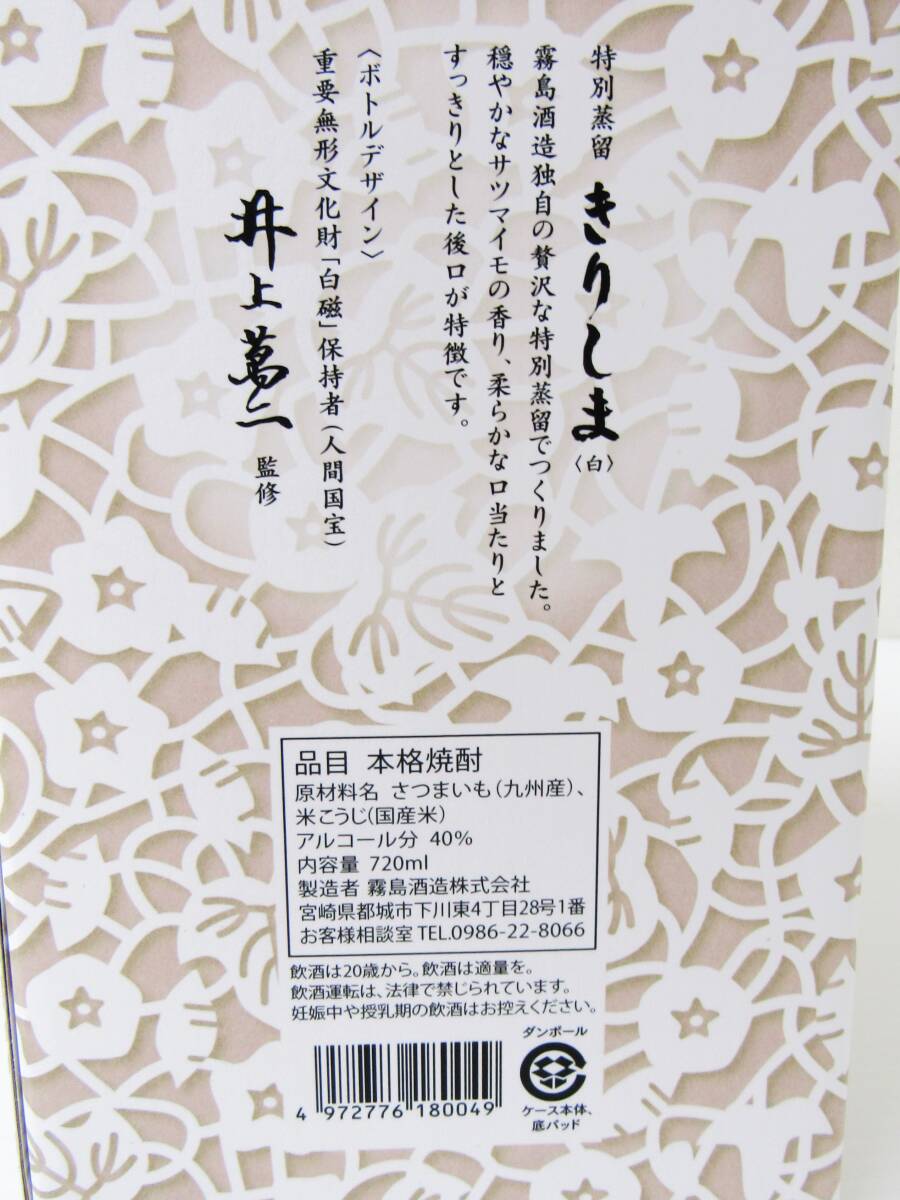 特別蒸留 きりしま〈白〉
霧島酒造独自の贅沢な特別蒸留でつくりました。
穏やかなサツマイモの香り、柔らかな口当たりと
すっきりとした後口が特徴です。
〈ボトルデザイン〉
重要無形文化財「白磁」保持者(人間国宝)
井上萬二 監修
品目 本格焼酎
原材料名 さつまいも(九州産)、
米こうじ(国産米)
アルコール分 40%
内容量 720ml
製造者 霧島酒造株式会社
宮崎県都城市下川東4丁目28号1番
お客様相談室 TEL.0986-22-8066
飲酒は20歳から。飲酒は適量を。
飲酒運転は、法律で禁じられています。
妊娠中や授乳期の飲酒はお控えください。
4 972776 180049
ダンボール
ケース本体、
底パッド